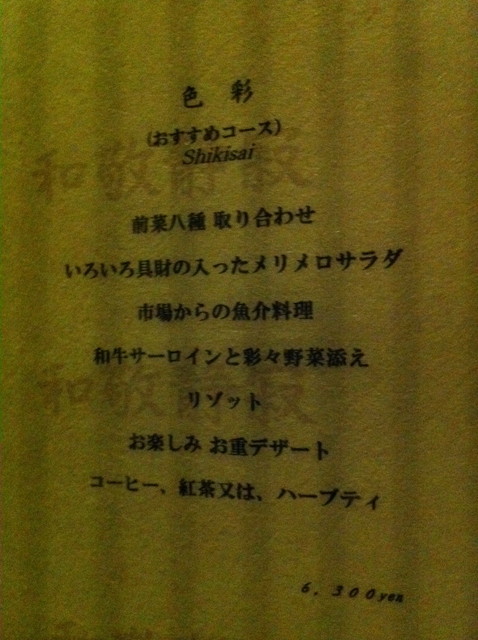 色彩
(おすすめコース)
Shikisai
前菜八種 取り合わせ
いろいろ具財の入ったメリメロサラダ
市場からの魚介料理
和牛サーロインと彩々野菜添え
リゾット
お楽しみ お重デザート
コーヒー、紅茶又は、ハーブティ
6,300yen
和敬静寂
和敬静寂